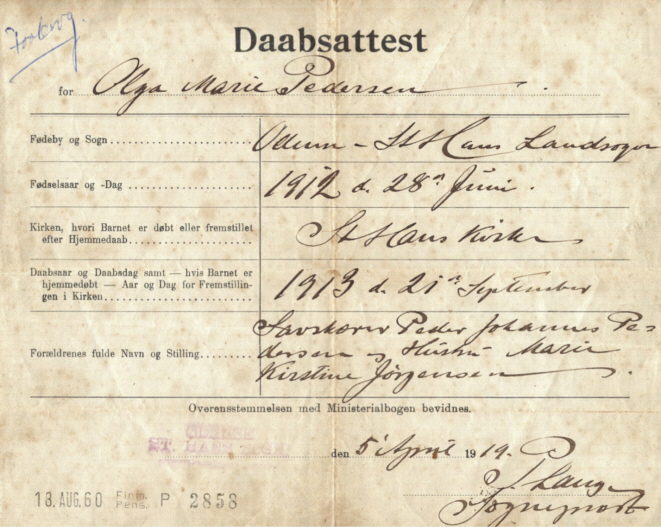 Daabsattest
for Olga Marie Pedersen
Fødeby og Sogn Odense - St Hans Landsogn
Fødselsaar og -Dag 1912 d. 28de Juni.
Kirken, hvori Barnet er døbt eller fremstillet
efter Hjemmedaab St Hans Kirke
Daabsaar og Daabsdag samt — hvis Barnet er
hjemmedøbt — Aar og Dag for Fremstillin-
gen i Kirken 1913 d. 21de September
Forældrenes fulde Navn og Stilling Savskærer Peder Johannes Pe-
dersen og Hustru Marie
Kirstine Jørgensen
Overensstemmelsen med Ministerialbogen bevidnes.
ODENSE
ST. HANS SOGN
den 5 April 1919.
Lange
Sognepræst
18. AUG. 60 Finm. Pens. P 2858